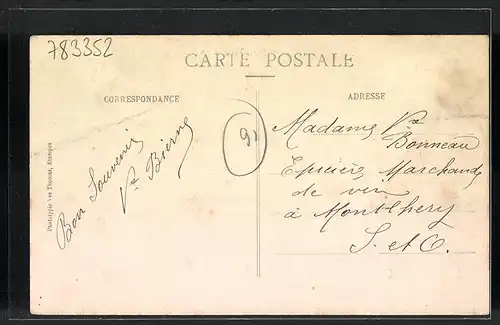 783352
CARTE POSTALE
CORRESPONDANCE
ADRESSE
Bon Souvenir
Vve Bierne
91
Madame Vve
Bonneau
Epicière, Marchande
de vin
à Montlhery
S. et O.
Phototypie Vve Thomas, Etampes